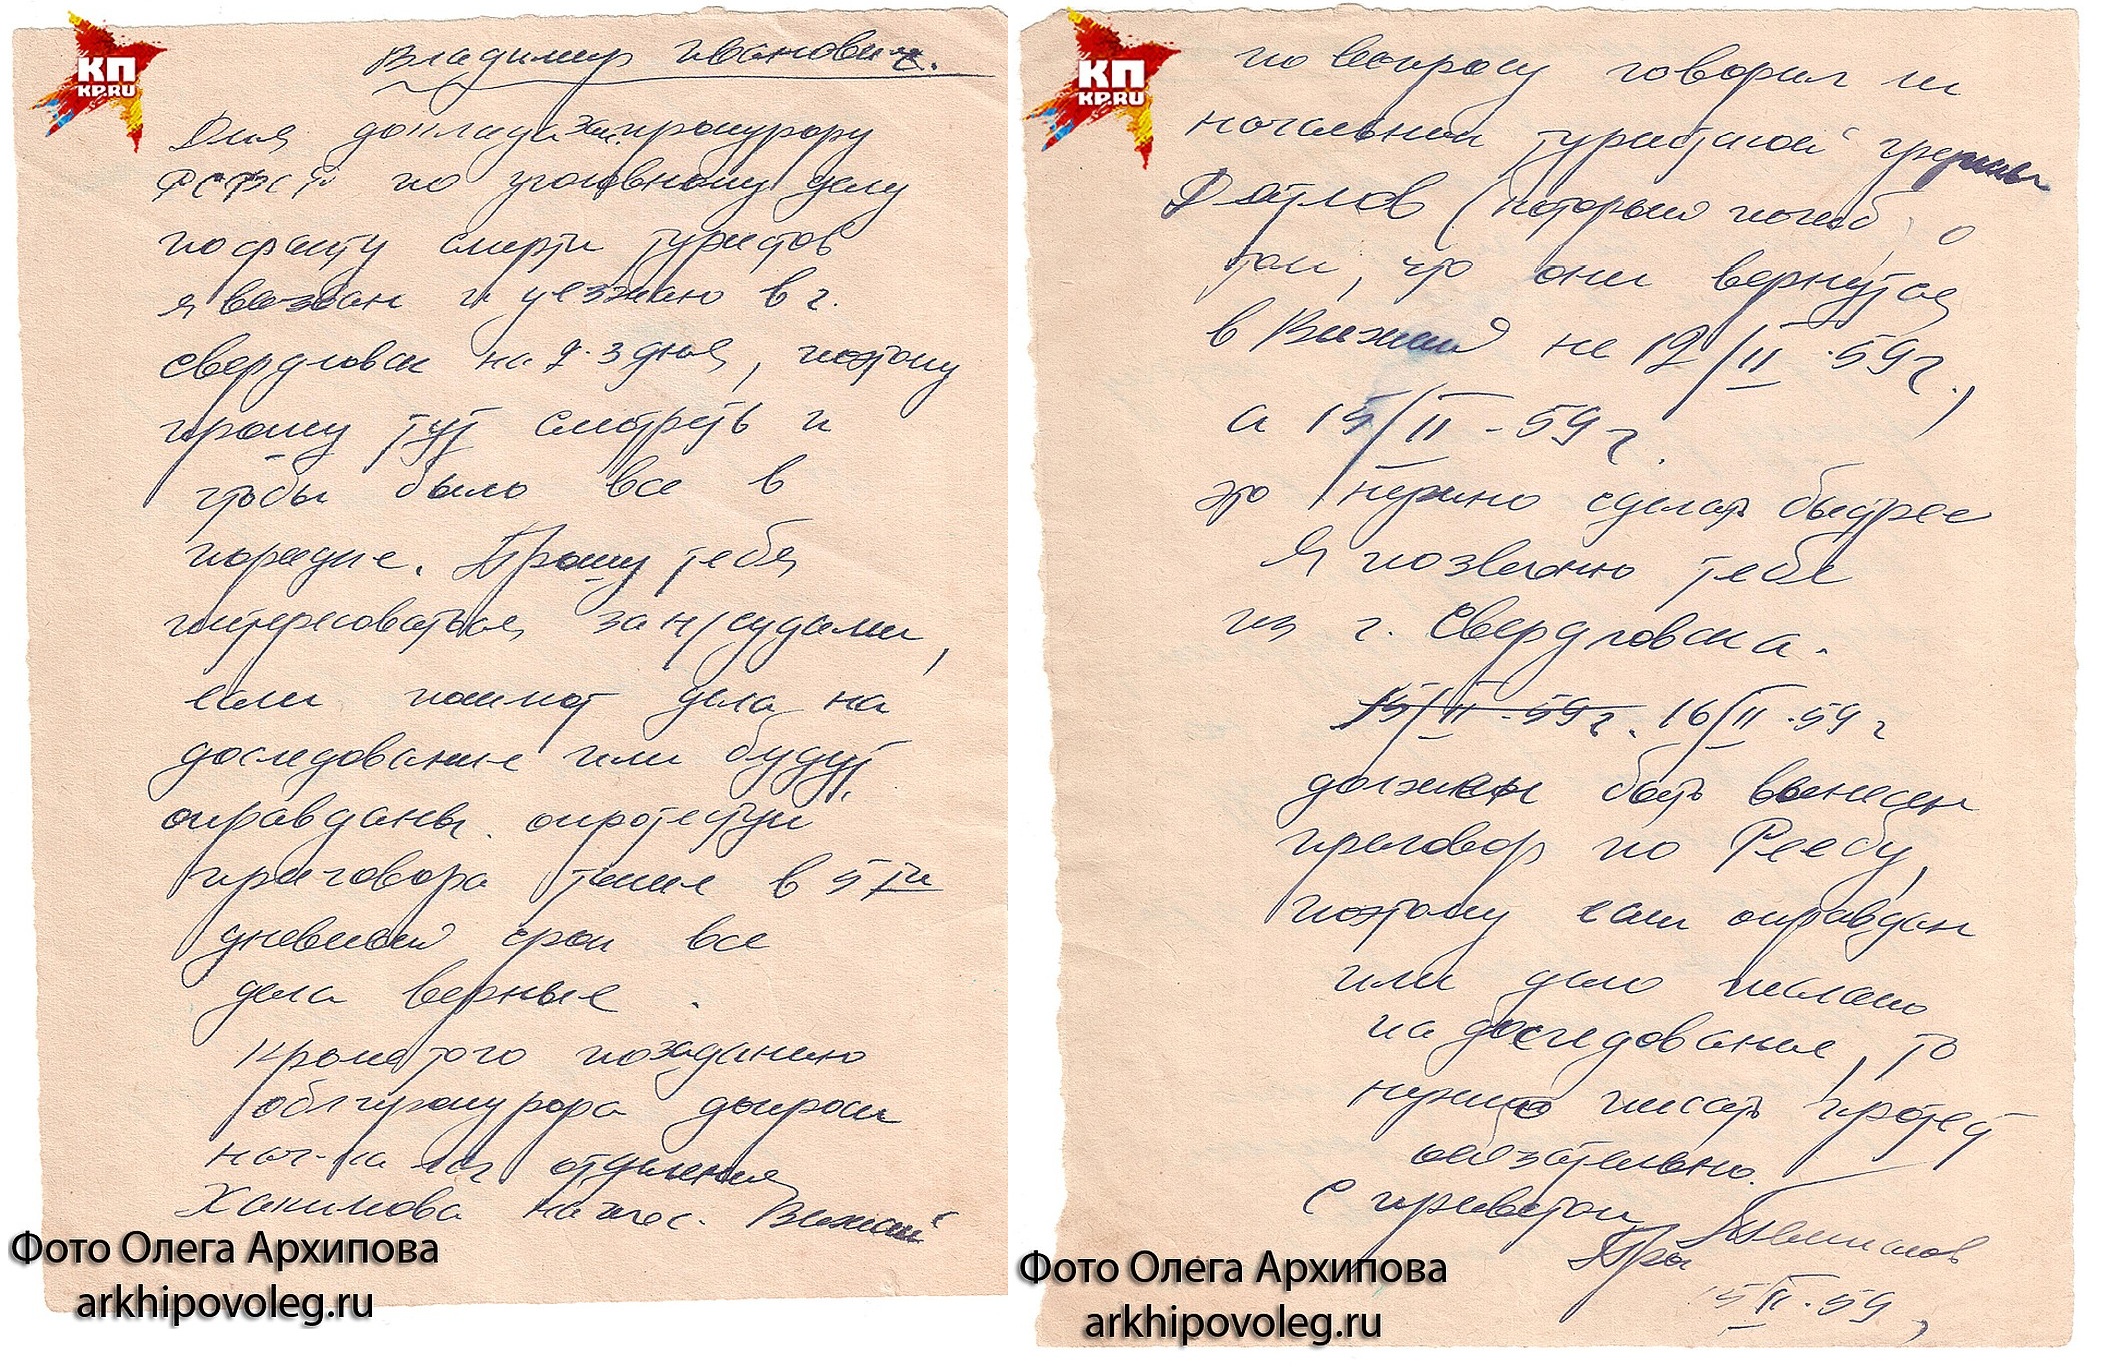 КП
KP.RU
Владимир Иванович.
Для доклада зам. прокурору
РСФСР по уголовному делу
по факту смерти туристов
я вызван и уезжаю в г.
Свердловск на 2-3 дня, поэтому
прошу тут смотреть и
чтобы было все в
порядке. Прошу тебя
интересоваться зак/судами,
если пошлют дела на
доследование или будут
оправданы. опротестуй
приговора такие в 5ти
дневный срок все
дела верные.
Кроме того по заданию
облпрокурора допроси
нач-ка л/г отделения
Хакимова на пос. Вижай
Фото Олега Архипова
arkhipovoleg.ru
КП
KP.RU
по вопросу говорил ли
начальник туристской группы
Дятлов (который погиб, о
том, что они вернутся
в Вижай не 12/II-59 г.,
а 15/II-59 г.
это нужно сделать быстрее
Я позвоню тебе
из г. Свердловска.
15/II-59 г. 16/II-59 г
должен быть вынесен
приговор по Реебу,
поэтому если оправдан
или дело послано
на доследование, то
нужно писать протест
обязательно.
С приветом Темпалов
15/II-59
Фото Олега Архипова
arkhipovoleg.ru